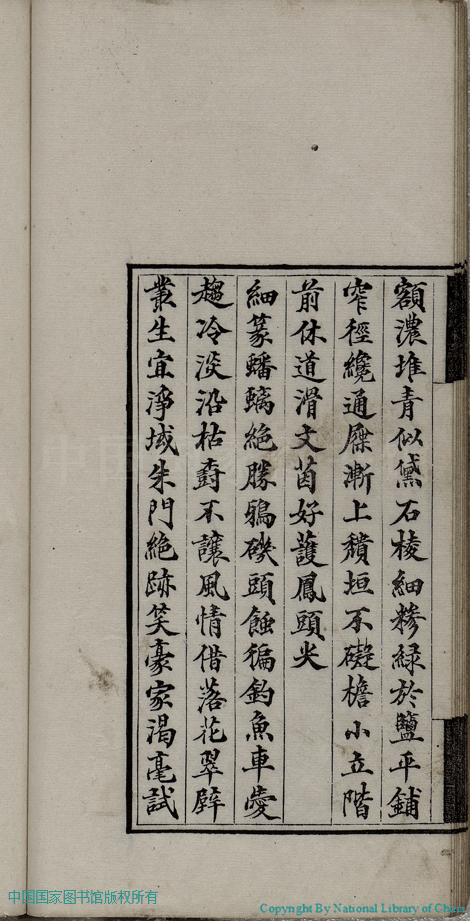 額濃堆青似黛石棱細糝緑於鹽平鋪
窄徑纔通屧漸上積垣不礙檐小立階
前休道滑文茵好護鳳頭尖
細篆蟠螭絶勝鴉磯頭蝕徧釣魚車愛
趨冷淡沿枯樹不讓風情借落花翠辟
叢生宜淨域朱門絶跡笑豪家渴毫試
中国国家图书馆版权所有
Copyright By National Library of